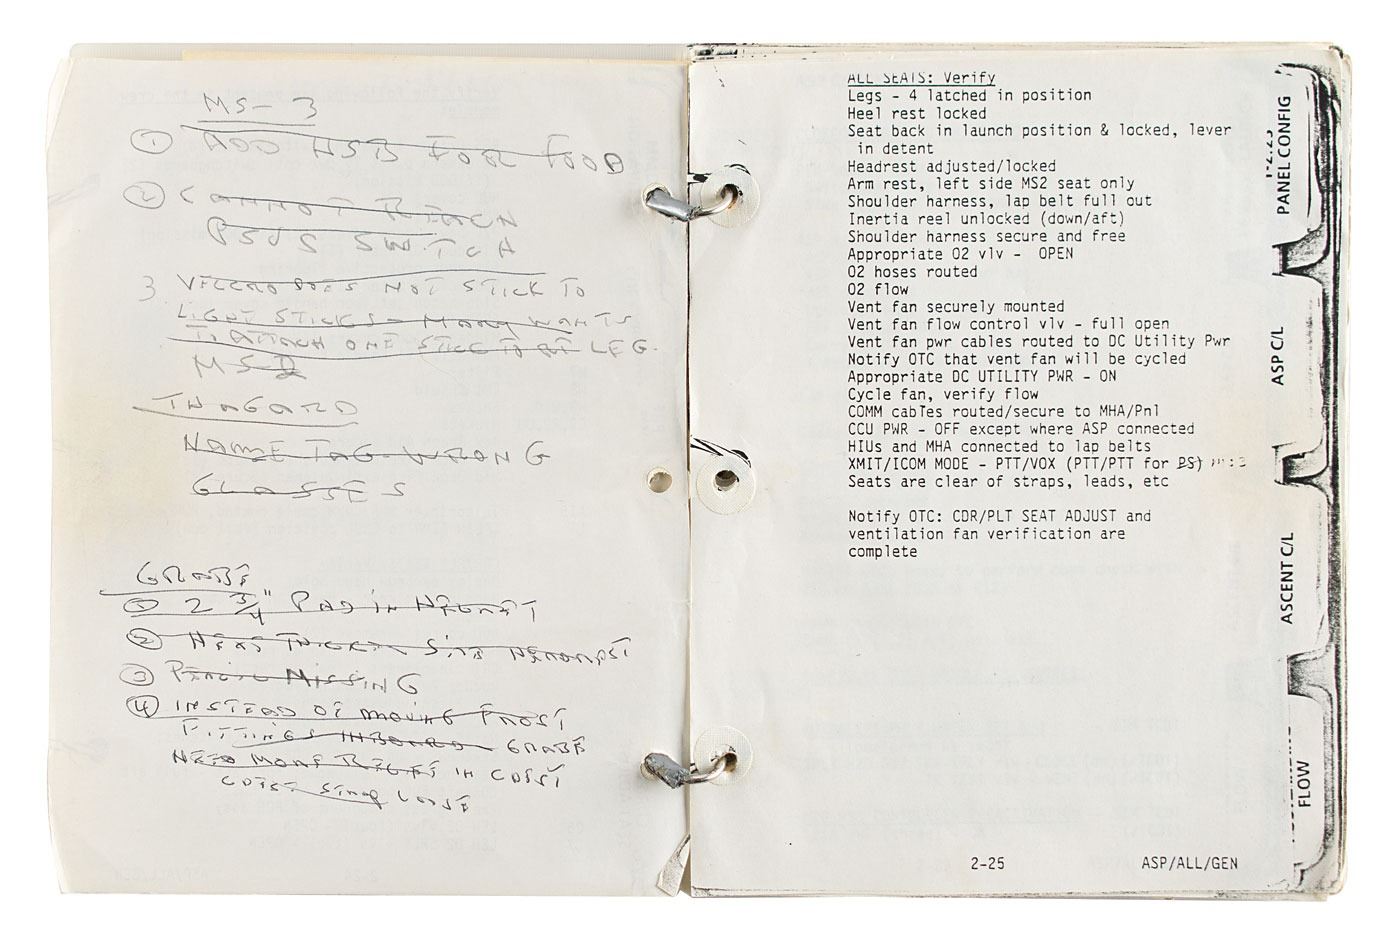 MS-3
① ADD HSB FOR FOOD
② CANNOT REACH
PSUS SWITCH
3 VELCRO DOES NOT STICK TO
LIGHT STICKS - MARY WANTS
TO ATTACH ONE STICK TO LEG.
MS2
INAGARD
NAME TAG WRONG
GLASSES
GRABE
① 2 3/4" PAD IN HELMET
② SITS
③ PENCIL MISSING
④ INSTEAD OF MOVING FRONT
FITTINGS INBOARD GRABE
NEED MORE IN
LOOSE
ALL SEATS: Verify
Legs - 4 latched in position
Heel rest locked
Seat back in launch position & locked, lever
in detent
Headrest adjusted/locked
Arm rest, left side MS2 seat only
Shoulder harness, lap belt full out
Inertia reel unlocked (down/aft)
Shoulder harness secure and free
Appropriate O2 vlv - OPEN
O2 hoses routed
O2 flow
Vent fan securely mounted
Vent fan flow control vlv - full open
Vent fan pwr cables routed to DC Utility Pwr
Notify OTC that vent fan will be cycled
Appropriate DC UTILITY PWR - ON
Cycle fan, verify flow
COMM cables routed/secure to MHA/Pnl
CCU PWR - OFF except where ASP connected
HIUs and MHA connected to lap belts
XMIT/ICOM MODE - PTT/VOX (PTT/PTT for PS)
Seats are clear of straps, leads, etc
Notify OTC: CDR/PLT SEAT ADJUST and
ventilation fan verification are
complete
2-25 ASP/ALL/GEN
PANEL CONFIG
ASP C/L
ASCENT C/L
FLOW